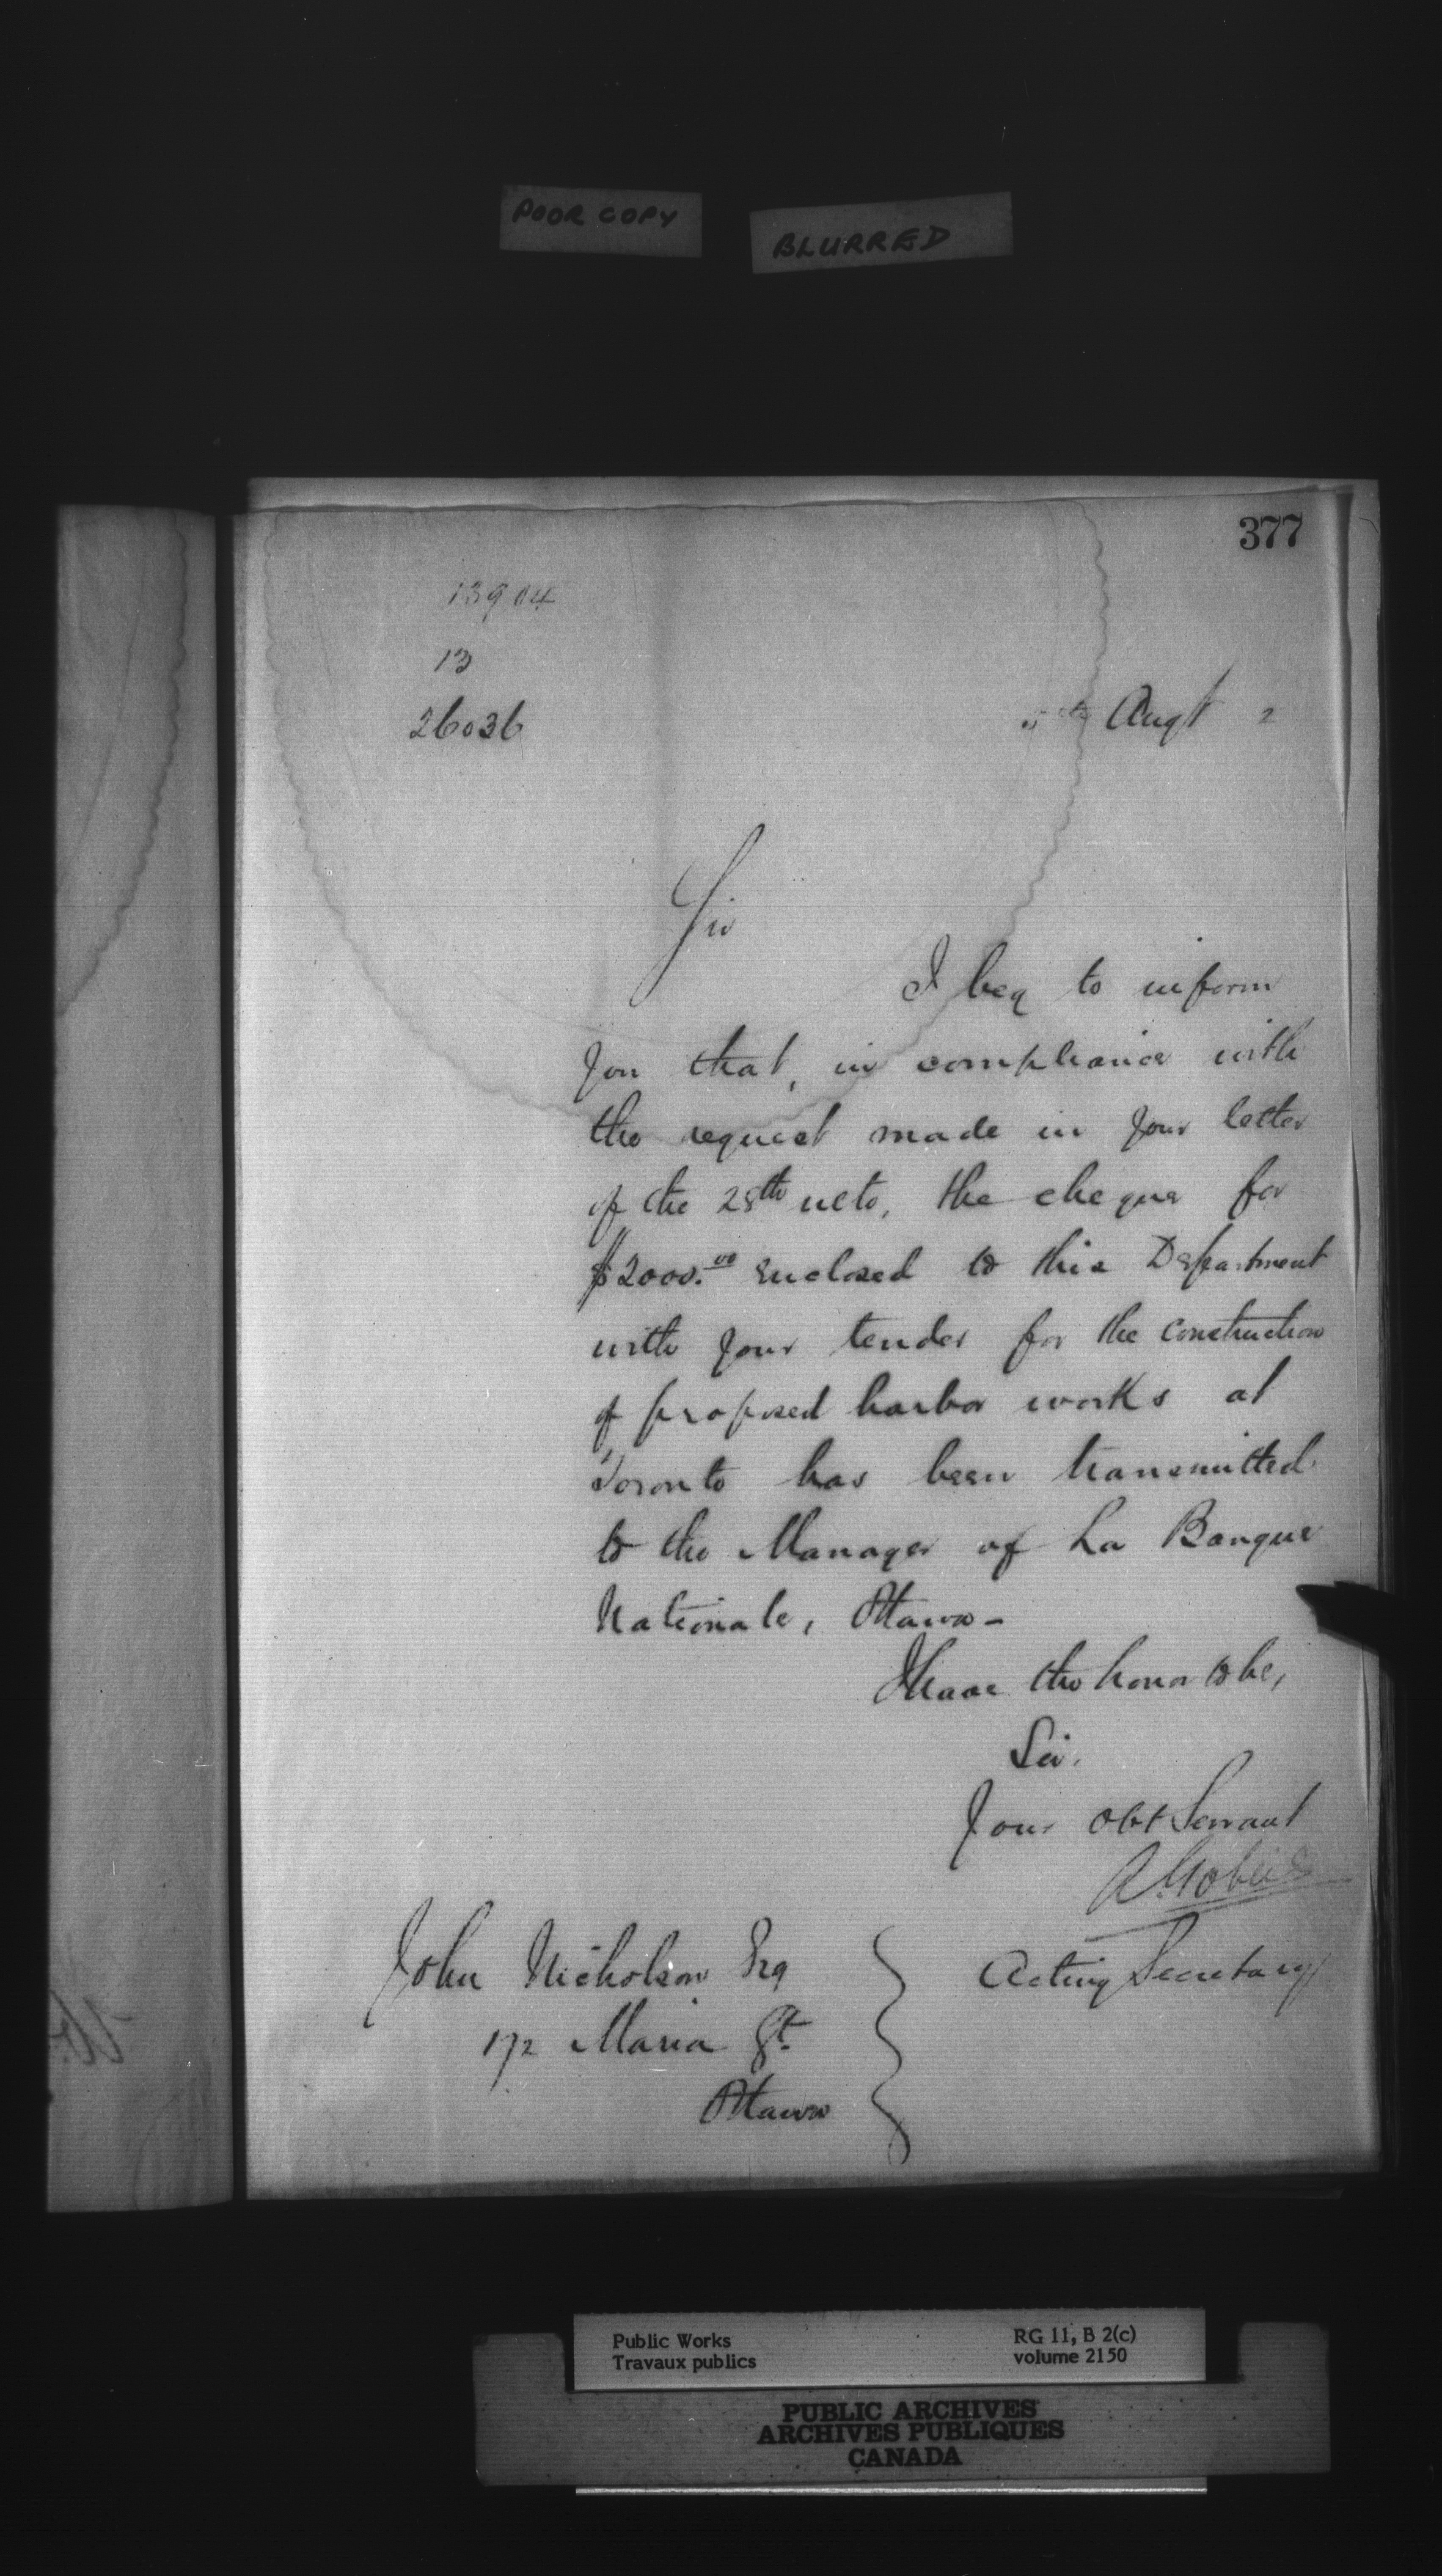 POOR COPY
BLURRED
377
13904
13
26036
5th Augt 2
Sir
I beg to inform
you that, in compliance with
the request made in your letter
of the 28th ulto, the cheque for
$2000.00 enclosed to this Department
with your tender for the construction
of proposed harbor works at
Toronto has been transmitted
to the Manager of La Banque
Nationale, Ottawa -
I have the honor to be,
Sir,
Your Obt Servant
A. Gobeil
Acting Secretary
John Nicholson Esq
172 Maria St
Ottawa
Public Works
Travaux publics
RG 11, B 2(c)
volume 2150
PUBLIC ARCHIVES
ARCHIVES PUBLIQUES
CANADA